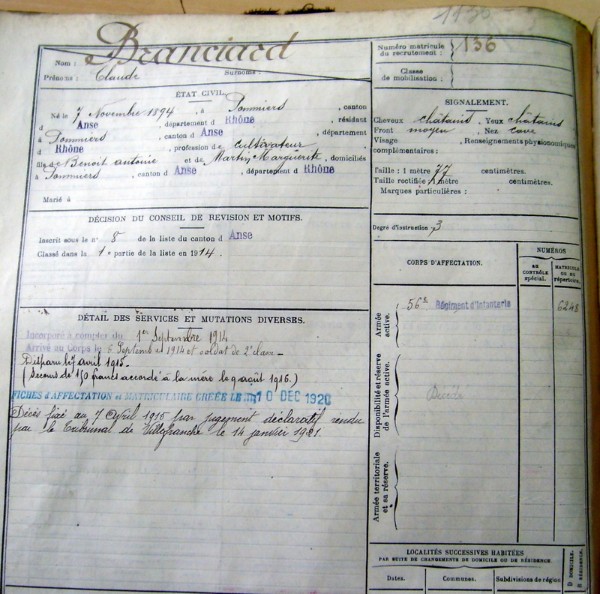 Branciard
Nom :
Prénoms : Claude Surnoms :
ÉTAT CIVIL.
Né le 7 Novembre 1894, à Pommiers, canton
d Anse, département d Rhône, résidant
à Pommiers, canton d Anse, département
d Rhône, profession de cultivateur
fils d Benoit antoine et de Martin Marguerite, domiciliés
à Pommiers, canton d Anse, département d Rhône
Marié à
DÉCISION DU CONSEIL DE REVISION ET MOTIFS.
Inscrit sous le n° 8 de la liste du canton d Anse
Classé dans la 1e partie de la liste en 1914.
DÉTAIL DES SERVICES ET MUTATIONS DIVERSES.
Incorporé à compter du 1er Septembre 1914
Arrivé au Corps le 6 Septembre 1914 et soldat de 2e classe
Disparu le 7 avril 1915.
(Secours de 150 francs accordé à la mère le 9 août 1916.)
FICHES d'AFFECTATION et MATRICULAIRE CRÉÉE LE 10 DEC 1920
Décès fixé au 7 Avril 1915 par jugement déclaratif rendu
par le Tribunal de Villefranche le 14 janvier 1921.
Numéro matricule
du recrutement : 136
Classe
de mobilisation :
SIGNALEMENT.
Cheveux châtains, Yeux châtains
Front moyen, Nez cave
Visage, Renseignements physionomiques
complémentaires :
Taille : 1 mètre 77 centimètres.
Taille rectifiée 1 mètre centimètres.
Marques particulières :
Degré d'instruction : 3
CORPS D'AFFECTATION.
NUMÉROS
AU CONTRÔLE spécial.
MATRICULE OU AU répertoire.
Armée active.
56e Régiment d'Infanterie 6248
Disponibilité et réserve de l'armée active.
Décédé
Armée territoriale et sa réserve.
LOCALITÉS SUCCESSIVES HABITÉES
PAR SUITE DE CHANGEMENTS DE DOMICILE OU DE RÉSIDENCE.
Dates. Communes. Subdivisions de région
D DOMICILE.
R RÉSIDENCE.